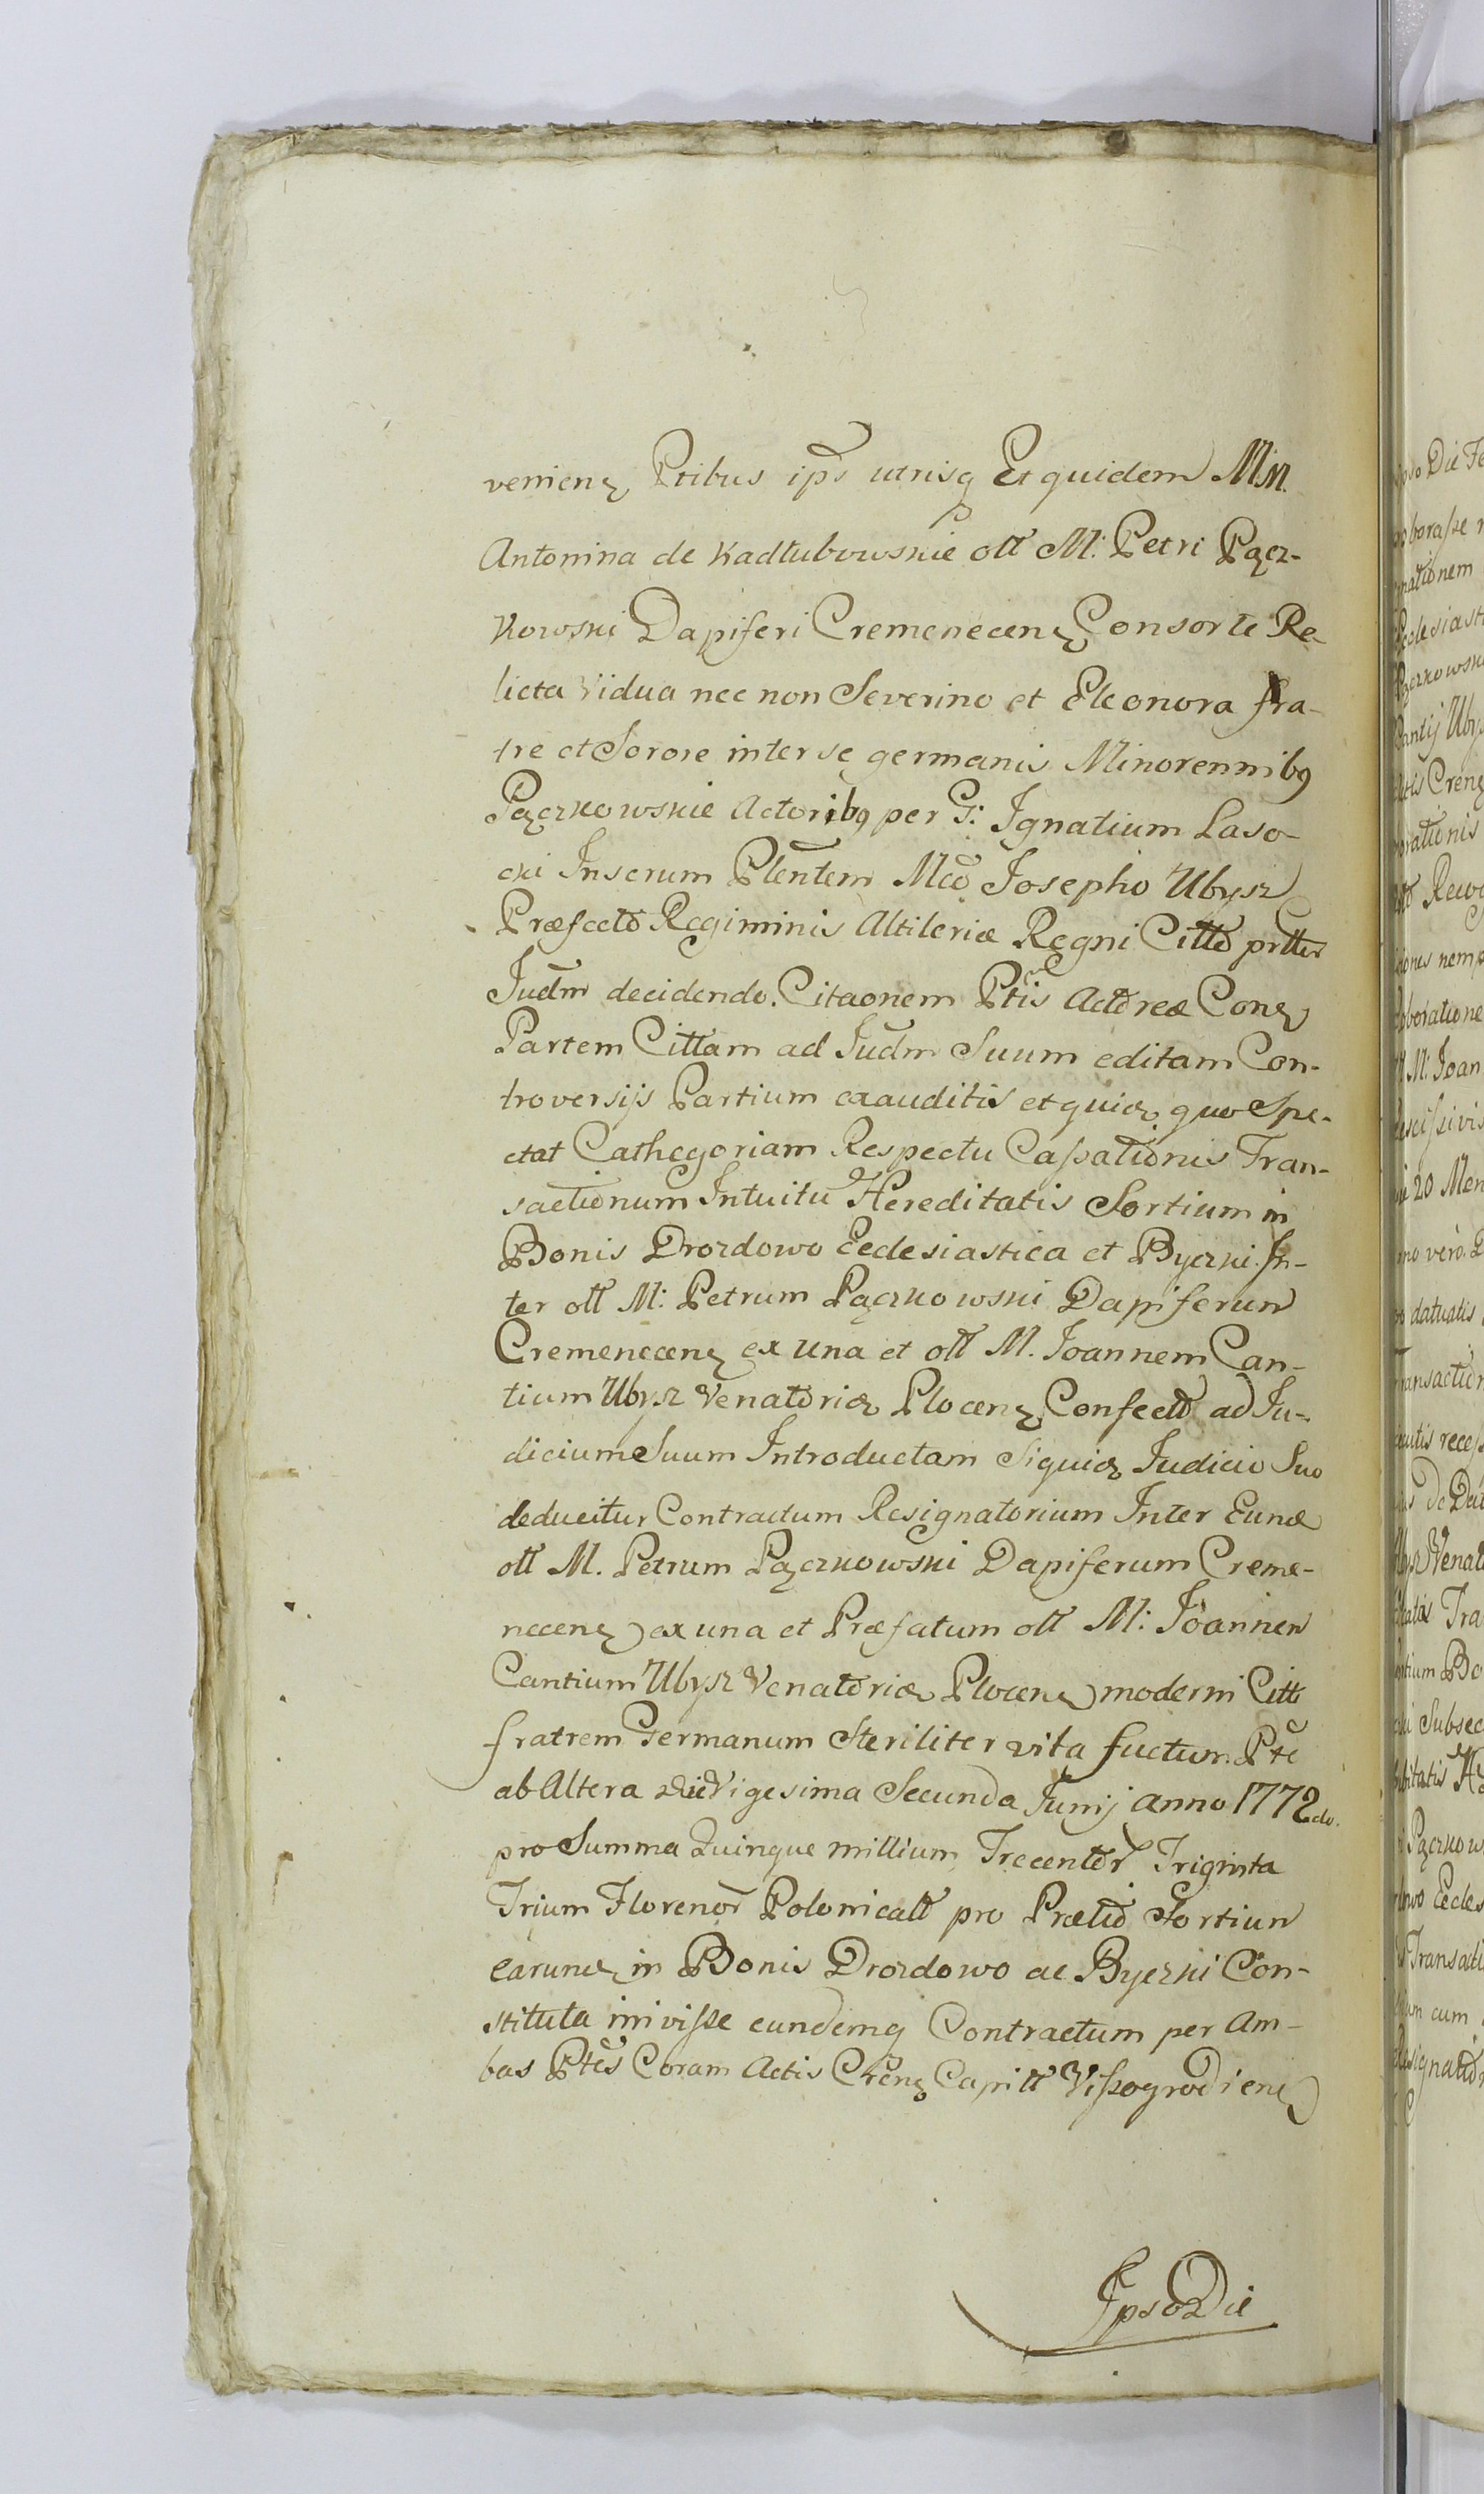 venienz Ptibus ips utrisq Et quidem MM.
Antonina de Kadłubowskie oll M: Petri Pącz-
kowski Dapiferi Cremenecenz Consorte Re-
licta Vidua nec non Severino et Eleonora fra-
tre et Sorore inter se germanis Minorennibq
Pączkowskie Actoribq per G: Ignatium Laso-
cki Inserum Plentem Mco Josepho Ubysz
Præfecto Regiminis Altileriæ Regni Citto prtter
Judm decidendo. Citaonem Ptis Actoreæ Conz
Partem Cittam ad Judm Suum editam Con-
troversijs Partium exauditis et quidz quo Spe-
ctat Cathegoriam Respectu Cassationis Tran-
sactionum Intuitu Hereditatis Sortium in
Bonis Drozdowo Ecclesiastica et Byczki In-
ter oll M: Petrum Pączkowski Dapiferum
Cremenecenz ex una et oll M. Joannem Can-
tium Ubysz Venatoridz Plocenz Confecto ad Ju-
dicium Suum Introductam Siquidz Judicio Suo
deducitur Contractum Resignatorium Inter Eund
oll M. Petrum Pączkowski Dapiferum Creme-
necenz ex una et Præfatum oll M: Joannem
Cantium Ubysz Venatoridz Plocenz moderni Citti
fratrem Germanum Steriliter vita fuctum Pte
ab Altera die Vigesima Secunda Junij anno 1772do.
pro Summa Quinque millium Trecentor Triginta
Trium Florenor Polonicall pro Prætio Sortium
earund in Bonis Drozdowo ac Byczki Con-
stituta inivisse eundemq Contractum per Am-
bas Ptes Coram Actis Crenz Capitt Vissogrodienz
Ipso Die